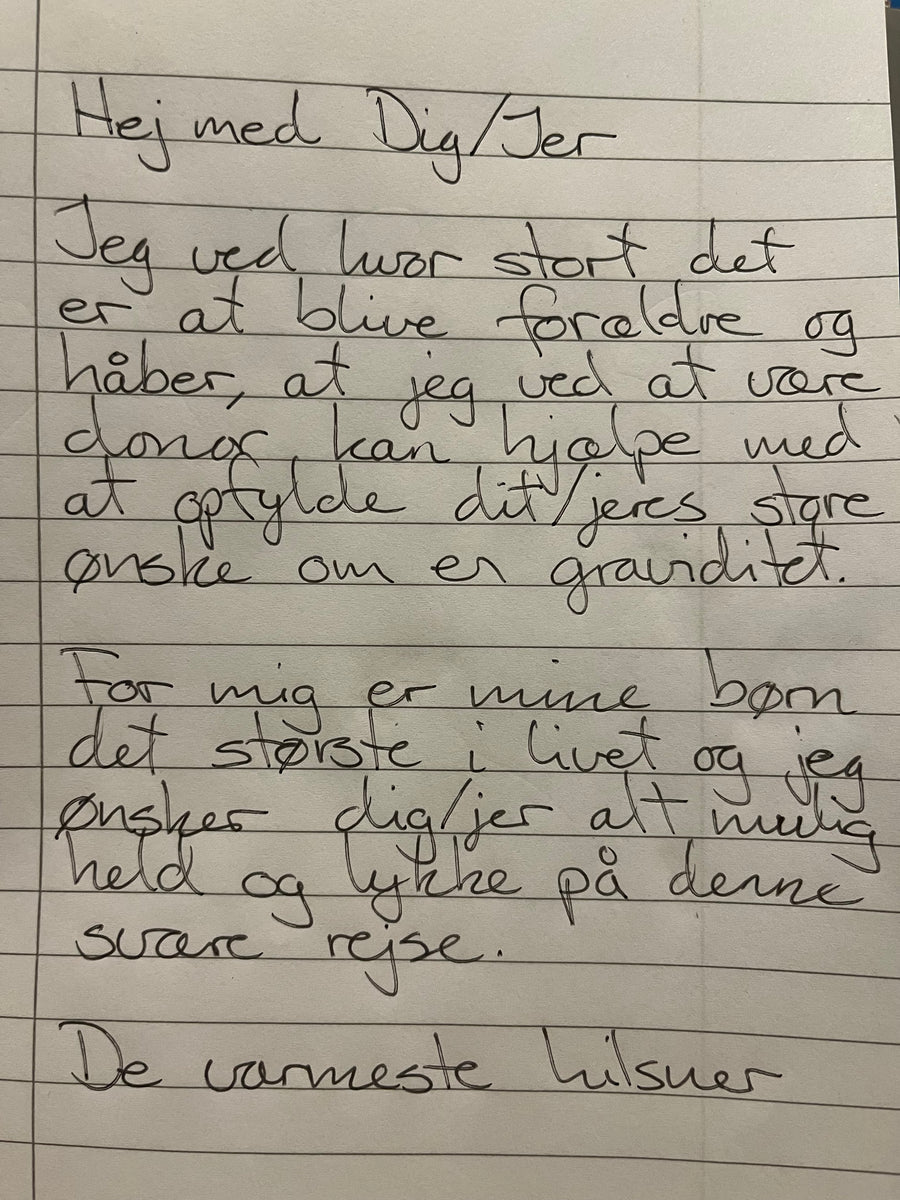 Hej med Dig/Jer
Jeg ved hvor stort det
er at blive forældre og
håber, at jeg ved at være
donor kan hjælpe med
at opfylde dit/jeres store
ønske om en graviditet.
For mig er mine børn
det største i livet og jeg
ønsker dig/jer alt mulig
held og lykke på denne
svære rejse.
De varmeste hilsner